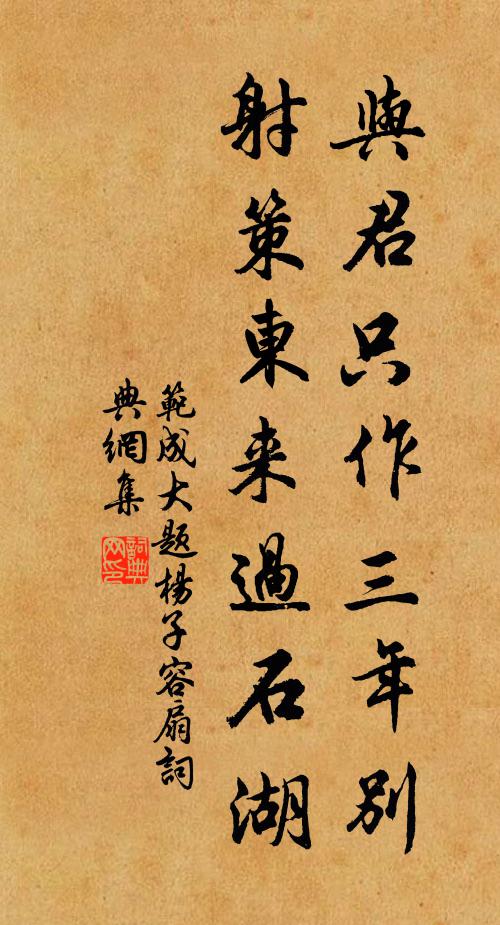 與君只作三年別
射策東来過石湖
範成大題楊子容扇詞
典網集
詞典網印